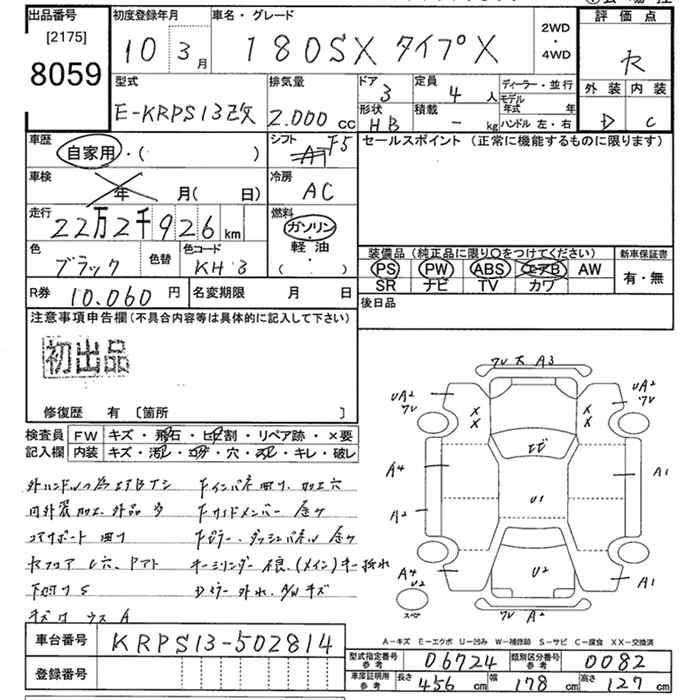 出品番号
[2175]
8059
初度登録年月
10 3月
車名・グレード
180SX タイプX
2WD
・
4WD
評価点
R
外装 内装
D C
型式
E-KRPS13改
排気量
2.000 cc
ドア
3
定員
4 人
ディーラー・並行
形状
HB
積載
- kg
モデル年式 年
ハンドル 左・右
車歴
自家用・( )
シフト
AT F5
セールスポイント (正常に機能するものに限ります)
車検
年 月( 日)
冷房
AC
走行
22万2千926 km
燃料
ガソリン
・
軽・油
( )
色
ブラック
色替
色コード
KH3
装備品(純正品に限り○をつけてください)
PS PW ABS エアB AW
SR ナビ TV カワ
新車保証書
有・無
R券 10.060 円
名変期限 月 日
後日品
注意事項申告欄(不具合内容等は具体的に記入して下さい)
初出品
修復歴 有 〔箇所 〕
検査員
記入欄
FW キズ・飛石・ヒビ割・リペア跡・×要
内装 キズ・汚レ・コゲ・穴・スレ・キレ・破レ
ワレ 大 A3
UA2
ワレ
UA2
ワレ
X
X
X
X
エビ
A4
A1
U1
A2
U2
A4
U2
A1
スペア
ワレ A2
外ハンドルの為エアBナシ
内外装加工、外品 多
コアサポート 曲り
A-キズ E-エクボ U-凹み W-補修跡 S-サビ C-腐食 XX-交換済
車台番号 KRPS13-502814
型式指定番号
参考
06724
類別区分番号
参考
0082
登録番号
車庫証明用
参考
長さ 456 cm
幅 178 cm
高さ 127 cm